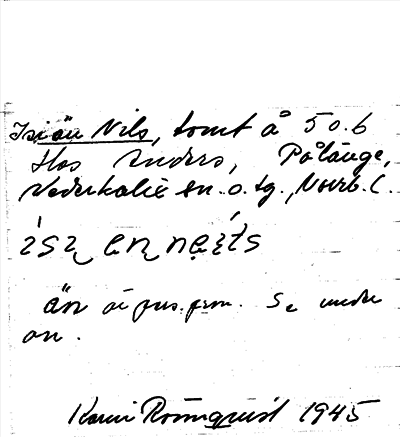 Isiän Nils, tomt å 5 o. 6
Hos Anders, Pålänge,
Nederkalix sn. o. tg., Norrb. l.
än är pres. form. Se under
an.
Karin Rönnquist 1945